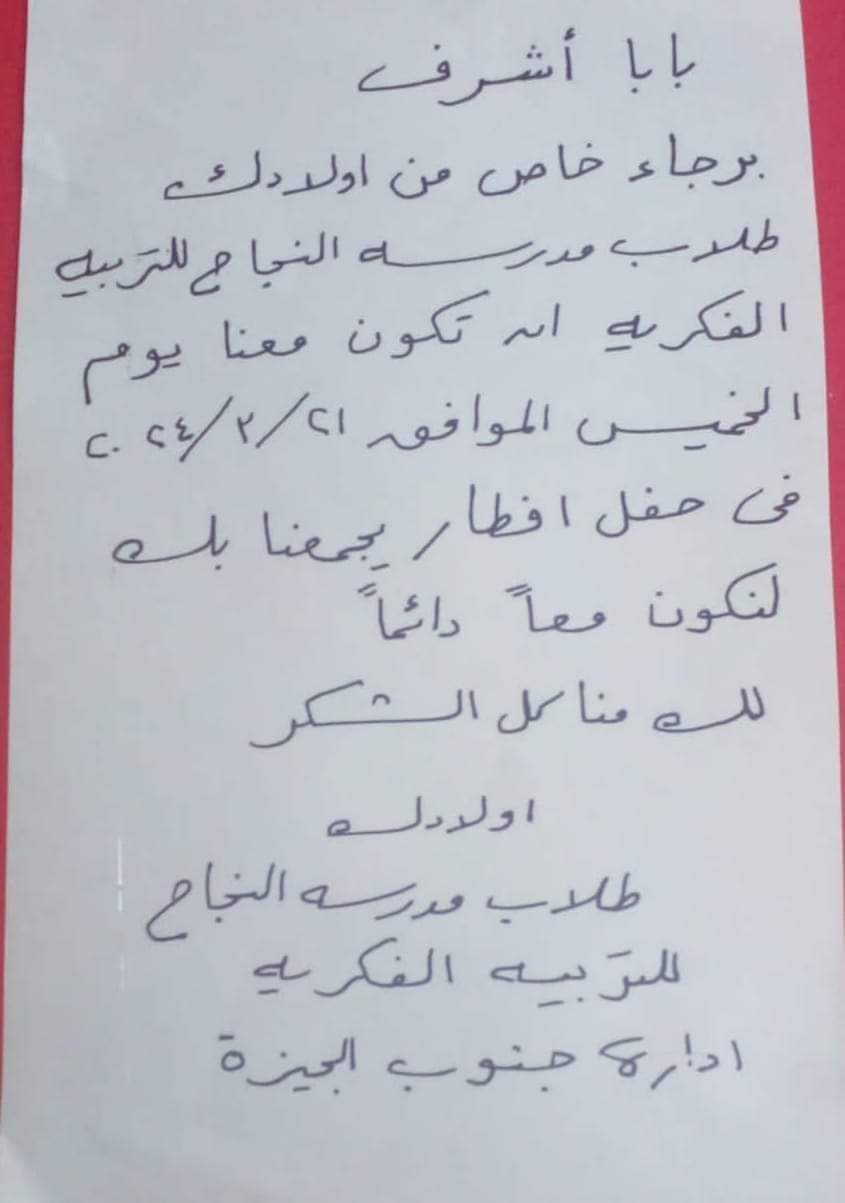 بابا أشرف
برجاء خاص من اولادك
طلاب مدرسه النجاح للتربيه
الفكريه ان تكون معنا يوم
الخميس الموافق ٢١/٣/٢٠٢٤
فى حفل افطار يجمعنا بك
لنكون معاً دائماً
لك منا كل الشكر
اولادك
طلاب مدرسه النجاح
للتربيه الفكريه
ادارة جنوب الجيزة